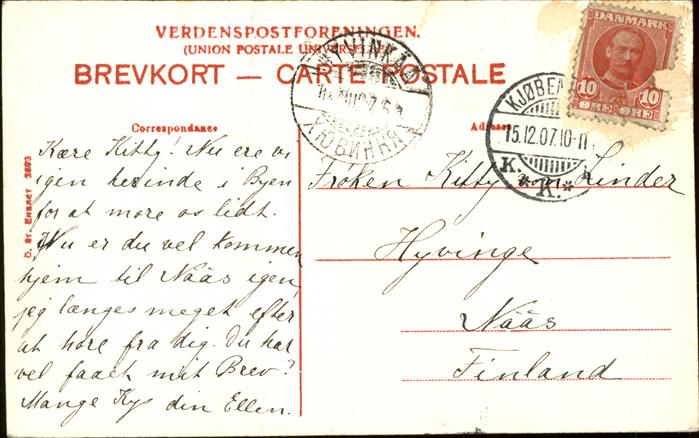 VERDENSPOSTFORENINGEN.
(UNION POSTALE UNIVERSELLE)
BREVKORT — CARTE POSTALE
Correspondance
Kære Kitty! Nu ere vi
igen herinde i Byen
for at more os lidt.
Nu er du vel kommen
hjem til Nääs igen,
jeg længes meget efter
at høre fra dig. Du har
vel faaet mit Brev?
Mange Kys din Ellen.
Adresse
Frøken Kitty von Linder
Hyvinge
Nääs
Finland
DANMARK
10 10
ØRE ØRE
KJØBEN
15.12.07.10-11
K. * K. *
HYVINKÄÄ
ХЮВИНКЯ